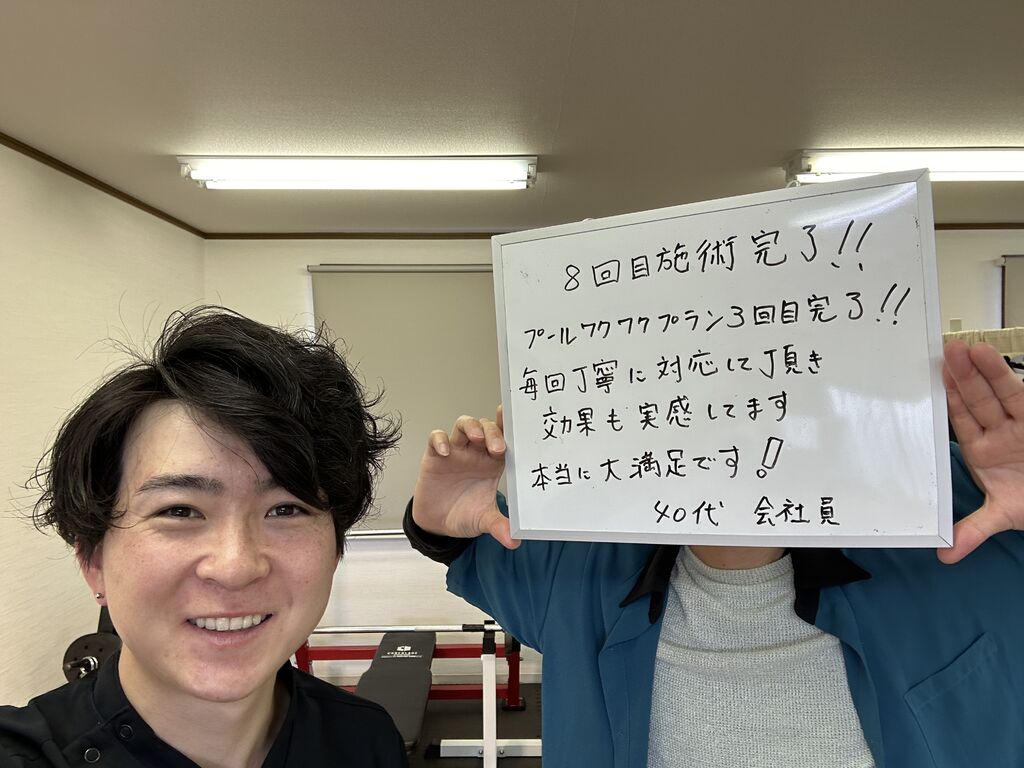 8回目施術完了!!
プールワクワクプラン3回目完了!!
毎回丁寧に対応して頂き
効果も実感してます
本当に大満足です!
40代 会社員